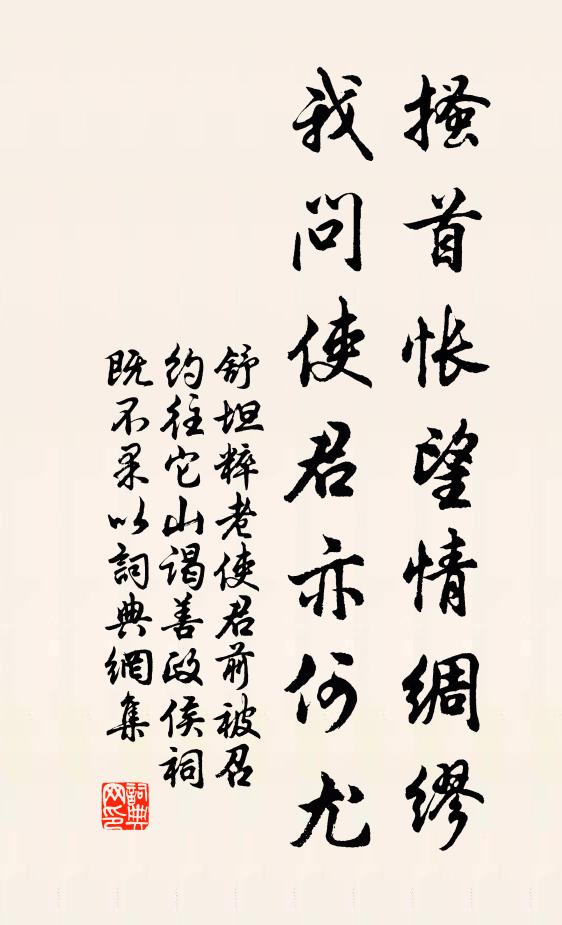 搔首怅望情绸缪
我问使君亦何尤
舒坦粹老使君前被召
约往它山谒善政侯祠
既不果以詞典網集
詞典网印